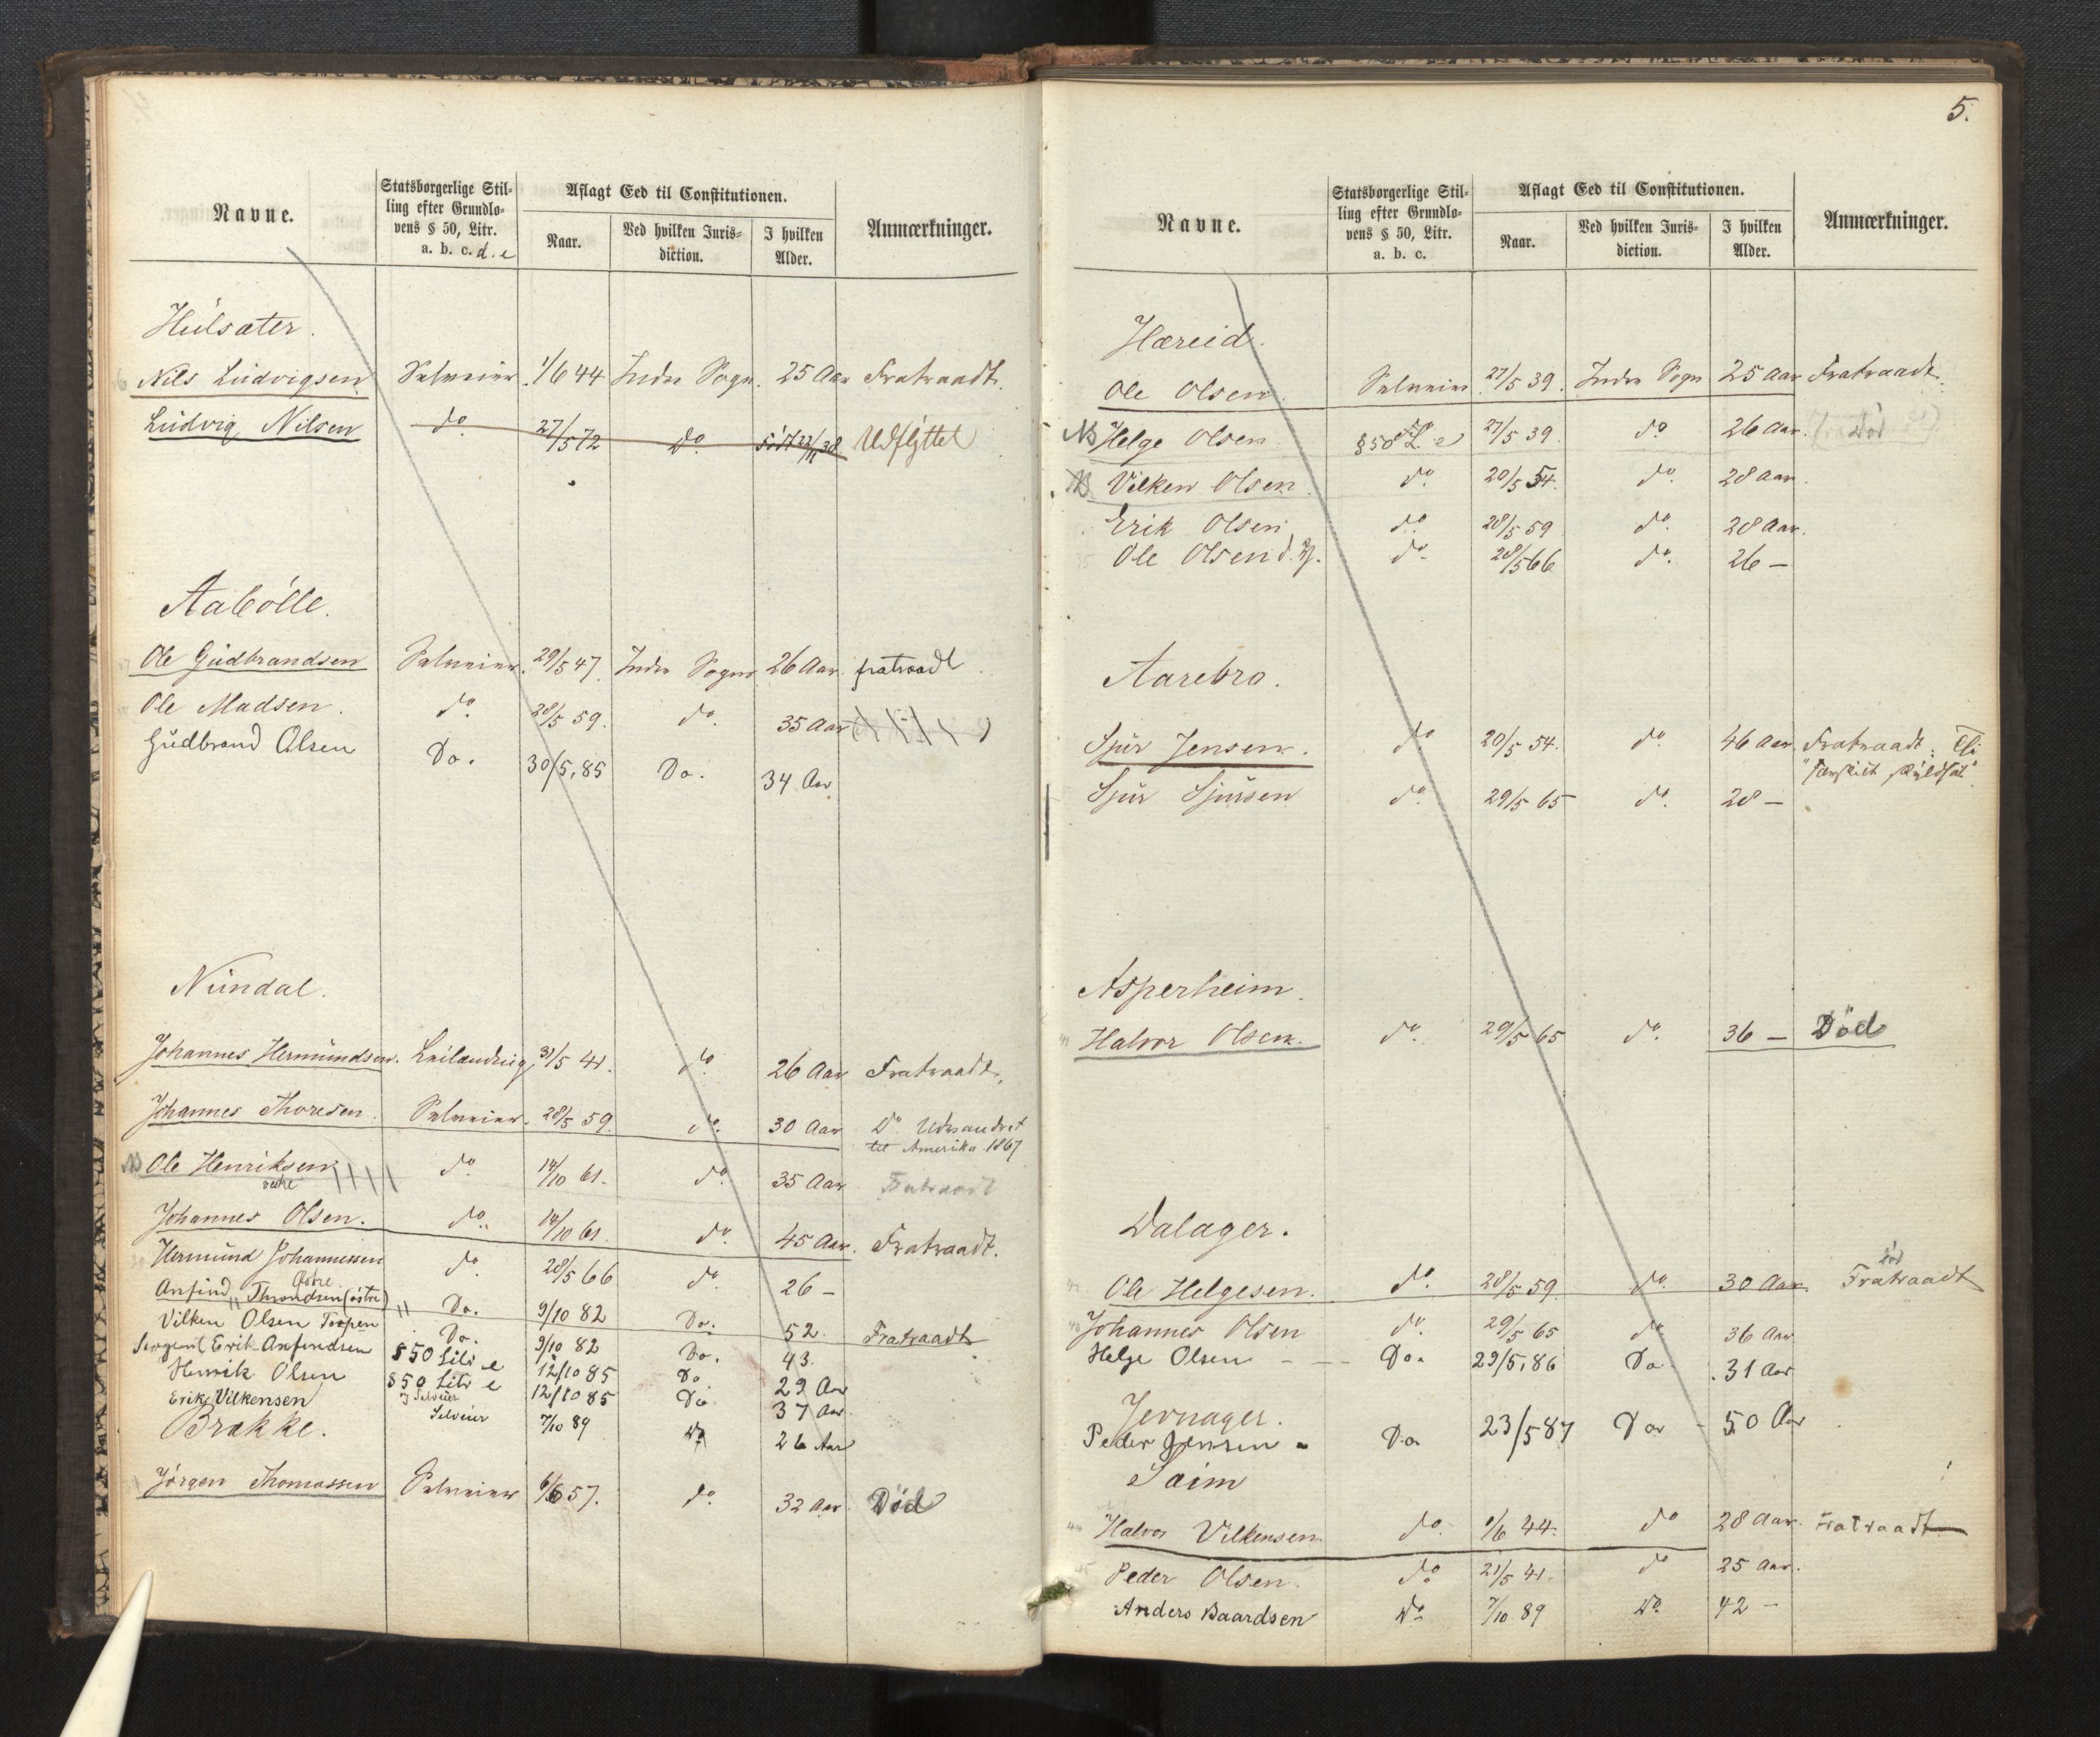 Navne. Statsborgerlige Stilling efter Grundlovens § 50, Litr. a. b. c. d. e Aflagt Eed til Constitutionen. Anmærkninger.
Naar. Ved hvilken Jurisdiction. I hvilken Alder.
Hülsæter.
Nils Lüdvigsen Selveier. 1/6 44 Indre Sogn. 25 Aar Fratraadt.
Lüdvig Nilsen do 27/5 72 do. Født 22/11 38 Udflyttet
Aabölle.
Ole Güdbrandsen Selveier. 29/5 47. Indre Sogn 26 Aar. fratraadt
Ole Madsen. do. 28/5 59. do. 35 Aar
Güdbrand Olsen Do. 30/5,85 Do. 34 Aar
Nündal.
Johannes Hermündsen. Leilændrig, 31/5 41. do 26 Aar Fratraadt,
Johannes Thoresen. Selveier. 28/5 59. do. 30 Aar Do Udvandret
til Amerika 1867
NB Ole Henriksen do. 14/10 61. do. 35 Aar Fratraadt
vestre
Johannes Olsen. do. 14/10 61. do. 45 Aar. Fratraadt.
Hermünd Johannessen do. 28/5 66 do. 26 —
Østre.
Anfind Throndsen (østre) " Do. 9/10 82 Do. 52. Fratraadt
Vilken Olsen Do. 9/10 82 Do. 43.
Sergent Erik Anfindsen § 50 Litr e 12/10 85 Do 29 Aar
Henrik Olsen § 50 Litr e 12/10 85 Do 37 Aar
Selveier
Erik Vilkensen Selveier 7/10 89 Do 26 Aar
Brække.
Jörgen Thomassen Selveier 6/6 57. do. 32 Aar. Död
5.
Navne. Statsborgerlige Stilling efter Grundlovens § 50, Litr. a. b. c. Aflagt Eed til Constitutionen. Anmærkninger.
Naar. Ved hvilken Jurisdiction. I hvilken Alder.
Hæreid.
Ole Olsen Selveier 27/5 39. Indre Sogn 25 Aar Fratraadt.
NB Helge Olsen § 50 L e 27/5 39. do 26 Aar. Död
NB Vilken Olsen. do. 20/5 54. do. 28 Aar.
Erik Olsen do. 28/5 59 do. 28 Aar.
Ole Olsen d. Y. do. 28/5 66 do. 26 —
Aarebro.
Sjür Jensen. do 20/5 54. do. 46 Aar. Fratraadt.
Sjür Sjürsen do. 29/5 65 do. 28 —
Asperheim.
Halvor Olsen. do. 29/5 65 do. 36 — Död
Dalager.
död
Ole Helgesen. do. 28/5 59. do. 30 Aar. Fratraadt
Johannes Olsen do. 29/5 65 do 36 Aar
Helge Olsen Do. 29/5,86 Do. 31 Aar
Jernager.
Peder Jensen Do 23/5 87 Do 50 Aar
Saim
Halvor Vilkensen. do. 1/6 44. do 28 Aar. Fratraadt
Peder Olsen. do. 21/5 41. do 25 Aar.
Anders Baardsen Do. 7/10 89 Do. 42 —